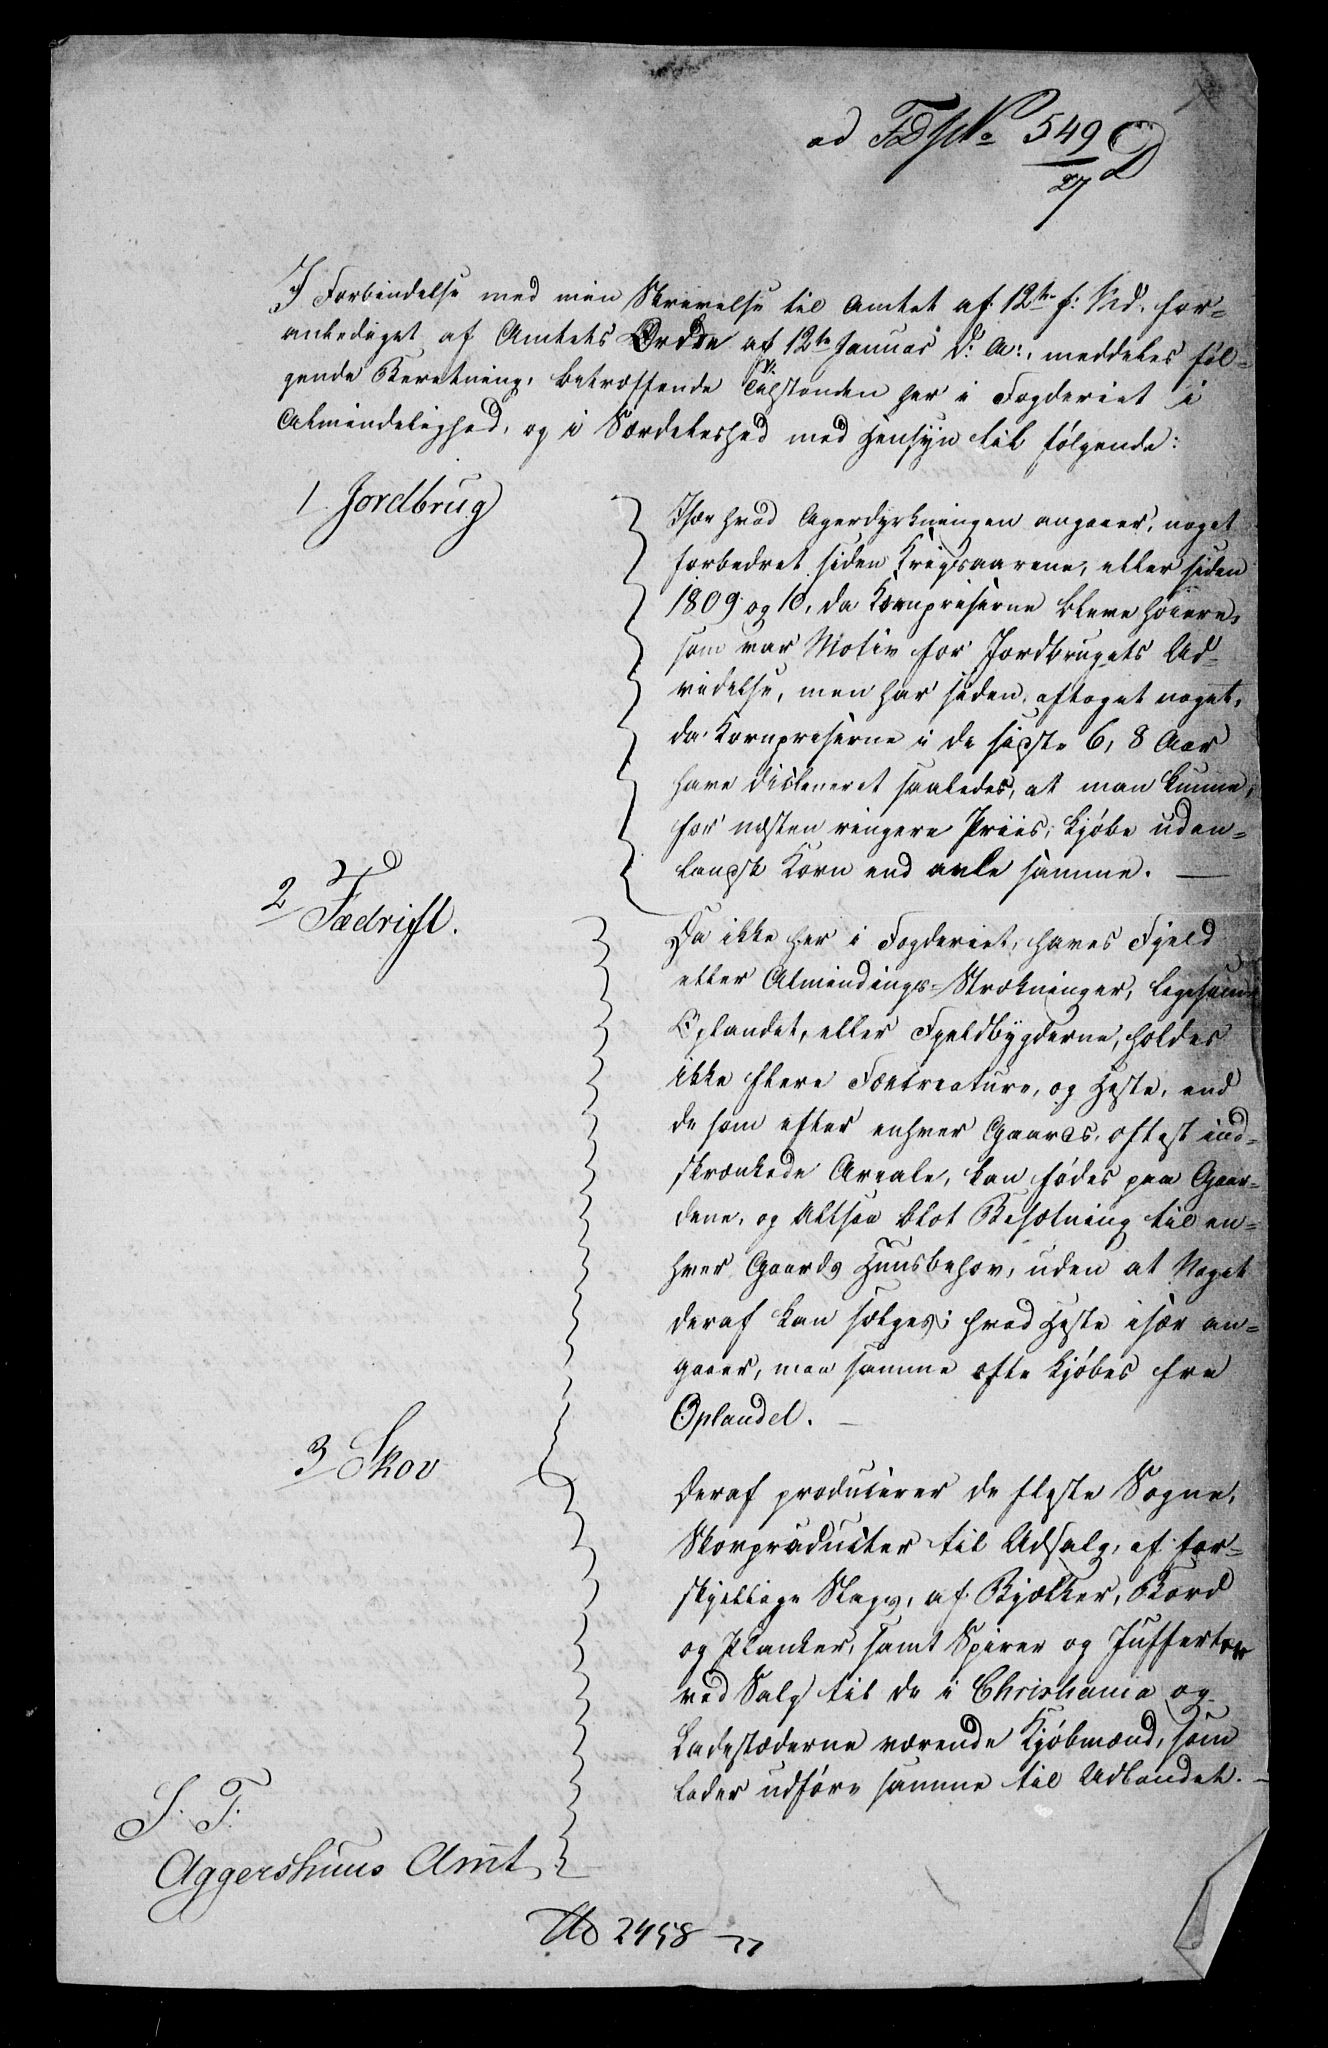 ad FDpt No 549/27 D
I Forbindelse med min Skrivelse til Amtet af 12te f: Md. for-
anlediget af Amtets Ordre af 12te Januar d: A:, meddeles føl-
gende Beretning, betræffende Tilstanden her i Fogderiet i
Almindelighed, og i Særdeleshed med Hensyn til følgende:
1 Jordbrug
Især hvad Agerdyrkningen angaaer, noget
forbedret siden Krigsaarene, eller siden
1809 og 10, da Kornpriserne bleve høiere,
som var Motiv for Jordbrugets Ud-
videlse, men har siden aftaget noget,
da Kornpriserne i de sidste 6, 8 Aar
have dicleneret saaledes, at man kunne,
for næsten ringere Priis, kjøbe uden-
landsk Korn end avle samme. —
2 Fædrift.
Da ikke her i Fogderiet, haves Fjeld
eller Almindings-Strækninger, ligesom i
Oplandet, eller Fjeldbygderne, holdes
ikke flere Fækreature, og Heste, end
de som efter enhver Gaards, oftest ind-
skrænkede Areale, kan fødes paa Gaar-
dene, og altsaa blot Besætning til en-
hver Gaards Huusbehov, uden at Noget
deraf kan sælges; hvad Heste især an-
gaaer, maa samme ofte kjøbes fra
Oplandet. —
3 Skov
Deraf producerer de fleste Sogne,
Skovproducter til Udsalg, af for-
skjellige Slags, af Bjælker, Bord
og Planker, samt Spirer og Jufferter
ved Salg til de i Christiania og
Ladestæderne værende Kjøbmænd, som
lader udføre samme til Udlandet. —
S. T.
Aggershuus Amt
No 2458 —27